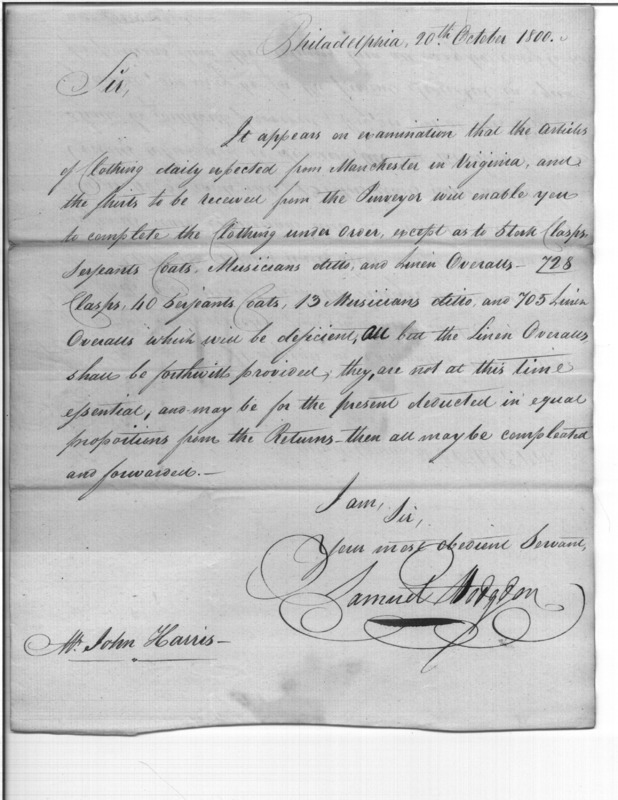 Philadelphia, 20th October 1800.
Sir,
It appears on examination that the articles
of Clothing daily expected from Manchester in Virginia, and
the Shirts to be received from the Purveyor will enable you
to complete the Clothing under order, except as to Stock Clasps,
Serjeants Coats, Musicians ditto, and Linen Overalls - 728
Clasps, 40 Serjeants Coats, 13 Musicians ditto, and 705 Linen
Overalls which will be deficient, all but the Linen Overalls
shall be forthwith provided, they are not at this time
essential, and may be for the present deducted in equal
proportions from the Returns - then all may be compleated
and forwarded. -
I am,
Sir,
Your most obedient Servant,
Samuel Hodgdon
Mr. John Harris -